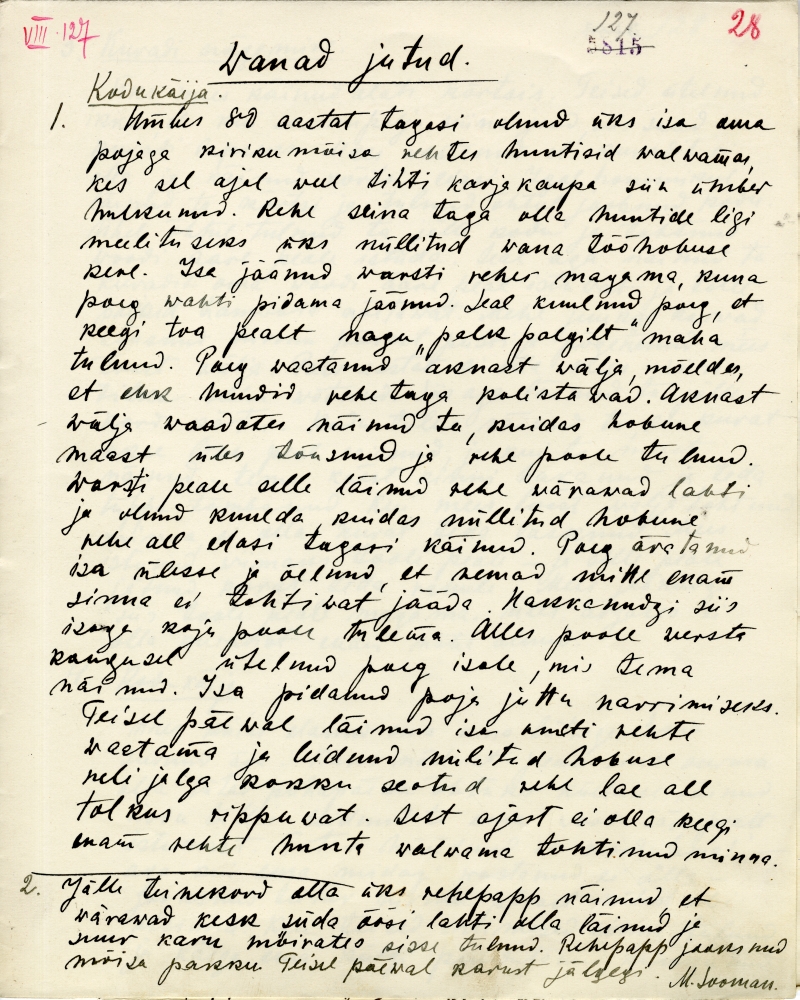 VIII 127
127
5815
28
Wanad jutud.
Kodukäija.
1. Umbes 80 aastat tagasi olnud üks isa oma
pojaga kiriku mõisa rehtes huntisid walwamas,
kes sel ajal weel tihti karjakaupa siin ümber
hulkunud. Rehe seina taga olla huntide ligi
meelituseks üks nüllitud wana tööhobuse
kere. Isa jäänud warsti rehes magama, kuna
poeg wahti pidama jäänud. Seal kuulnud poeg, et
keegi toa pealt nagu „palk palgilt“ maha
tulnud. Poeg waatanud aknast wälja, mõeldes,
et ehk hundid rehe taga kolistawad. Aknast
wälja waadates näinud ta, kuidas hobune
maast üles tõusnud ja rehe poole tulnud.
Warsti peale selle läinud rehe wärawad lahti
ja olnud kuulda, kuidas nüllitud hobune
rehe all edasi tagasi käinud. Poeg äratanud
isa ülesse ja öelnud, et nemad mitte enam
sinna ei tohtiwat jääda. Hakkanudgi siis
isaga koju poole tulema. Alles poole wersta
kaugusel ütelnud poeg isale, mis tema
näinud. Isa pidanud poja juttu narrimiseks.
Teisel päewal läinud isa ometi rehte
waatama ja leidnud nülitud hobuse
neli jalga kokku seotud rehe lae all
tolkus rippuwat. Sest ajast ei olla keegi
enam rehte hunta walwama tohtinud minna.
2. Jälle teinekord olla üks rehepapp näinud, et
wärawad kesk süda öösi lahti olla läinud ja
suur karu möirates sisse tulnud. Rehepapp jooksnud
mõisa pakku. Teisel päewal karust jälgegi.
M. Sooman.